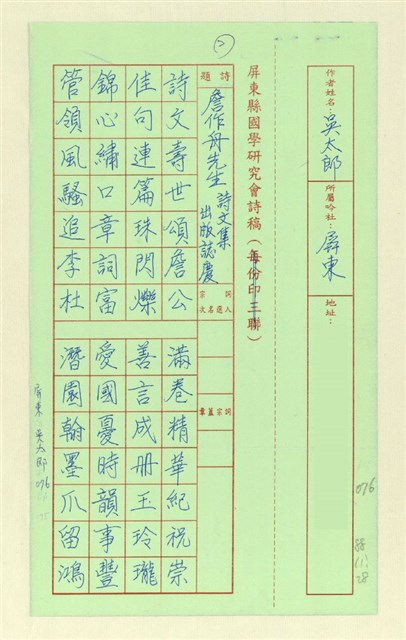 作者姓名：吳太郎
所屬吟社：屏東
地址：
076
屏東縣國學研究會詩稿（每份印三聯）
詩題
詹作舟先生
詩文集
出版誌慶
詞宗
入選名次
詞宗蓋章
詩文壽世頌詹公
滿卷精華紀祝榮
佳句連篇珠閃爍
善言成冊玉玲瓏
錦心繡口章詞富
愛國憂時韻事豐
管領風騷追李杜
潛園翰墨爪留鴻
屏東 吳太郎 076